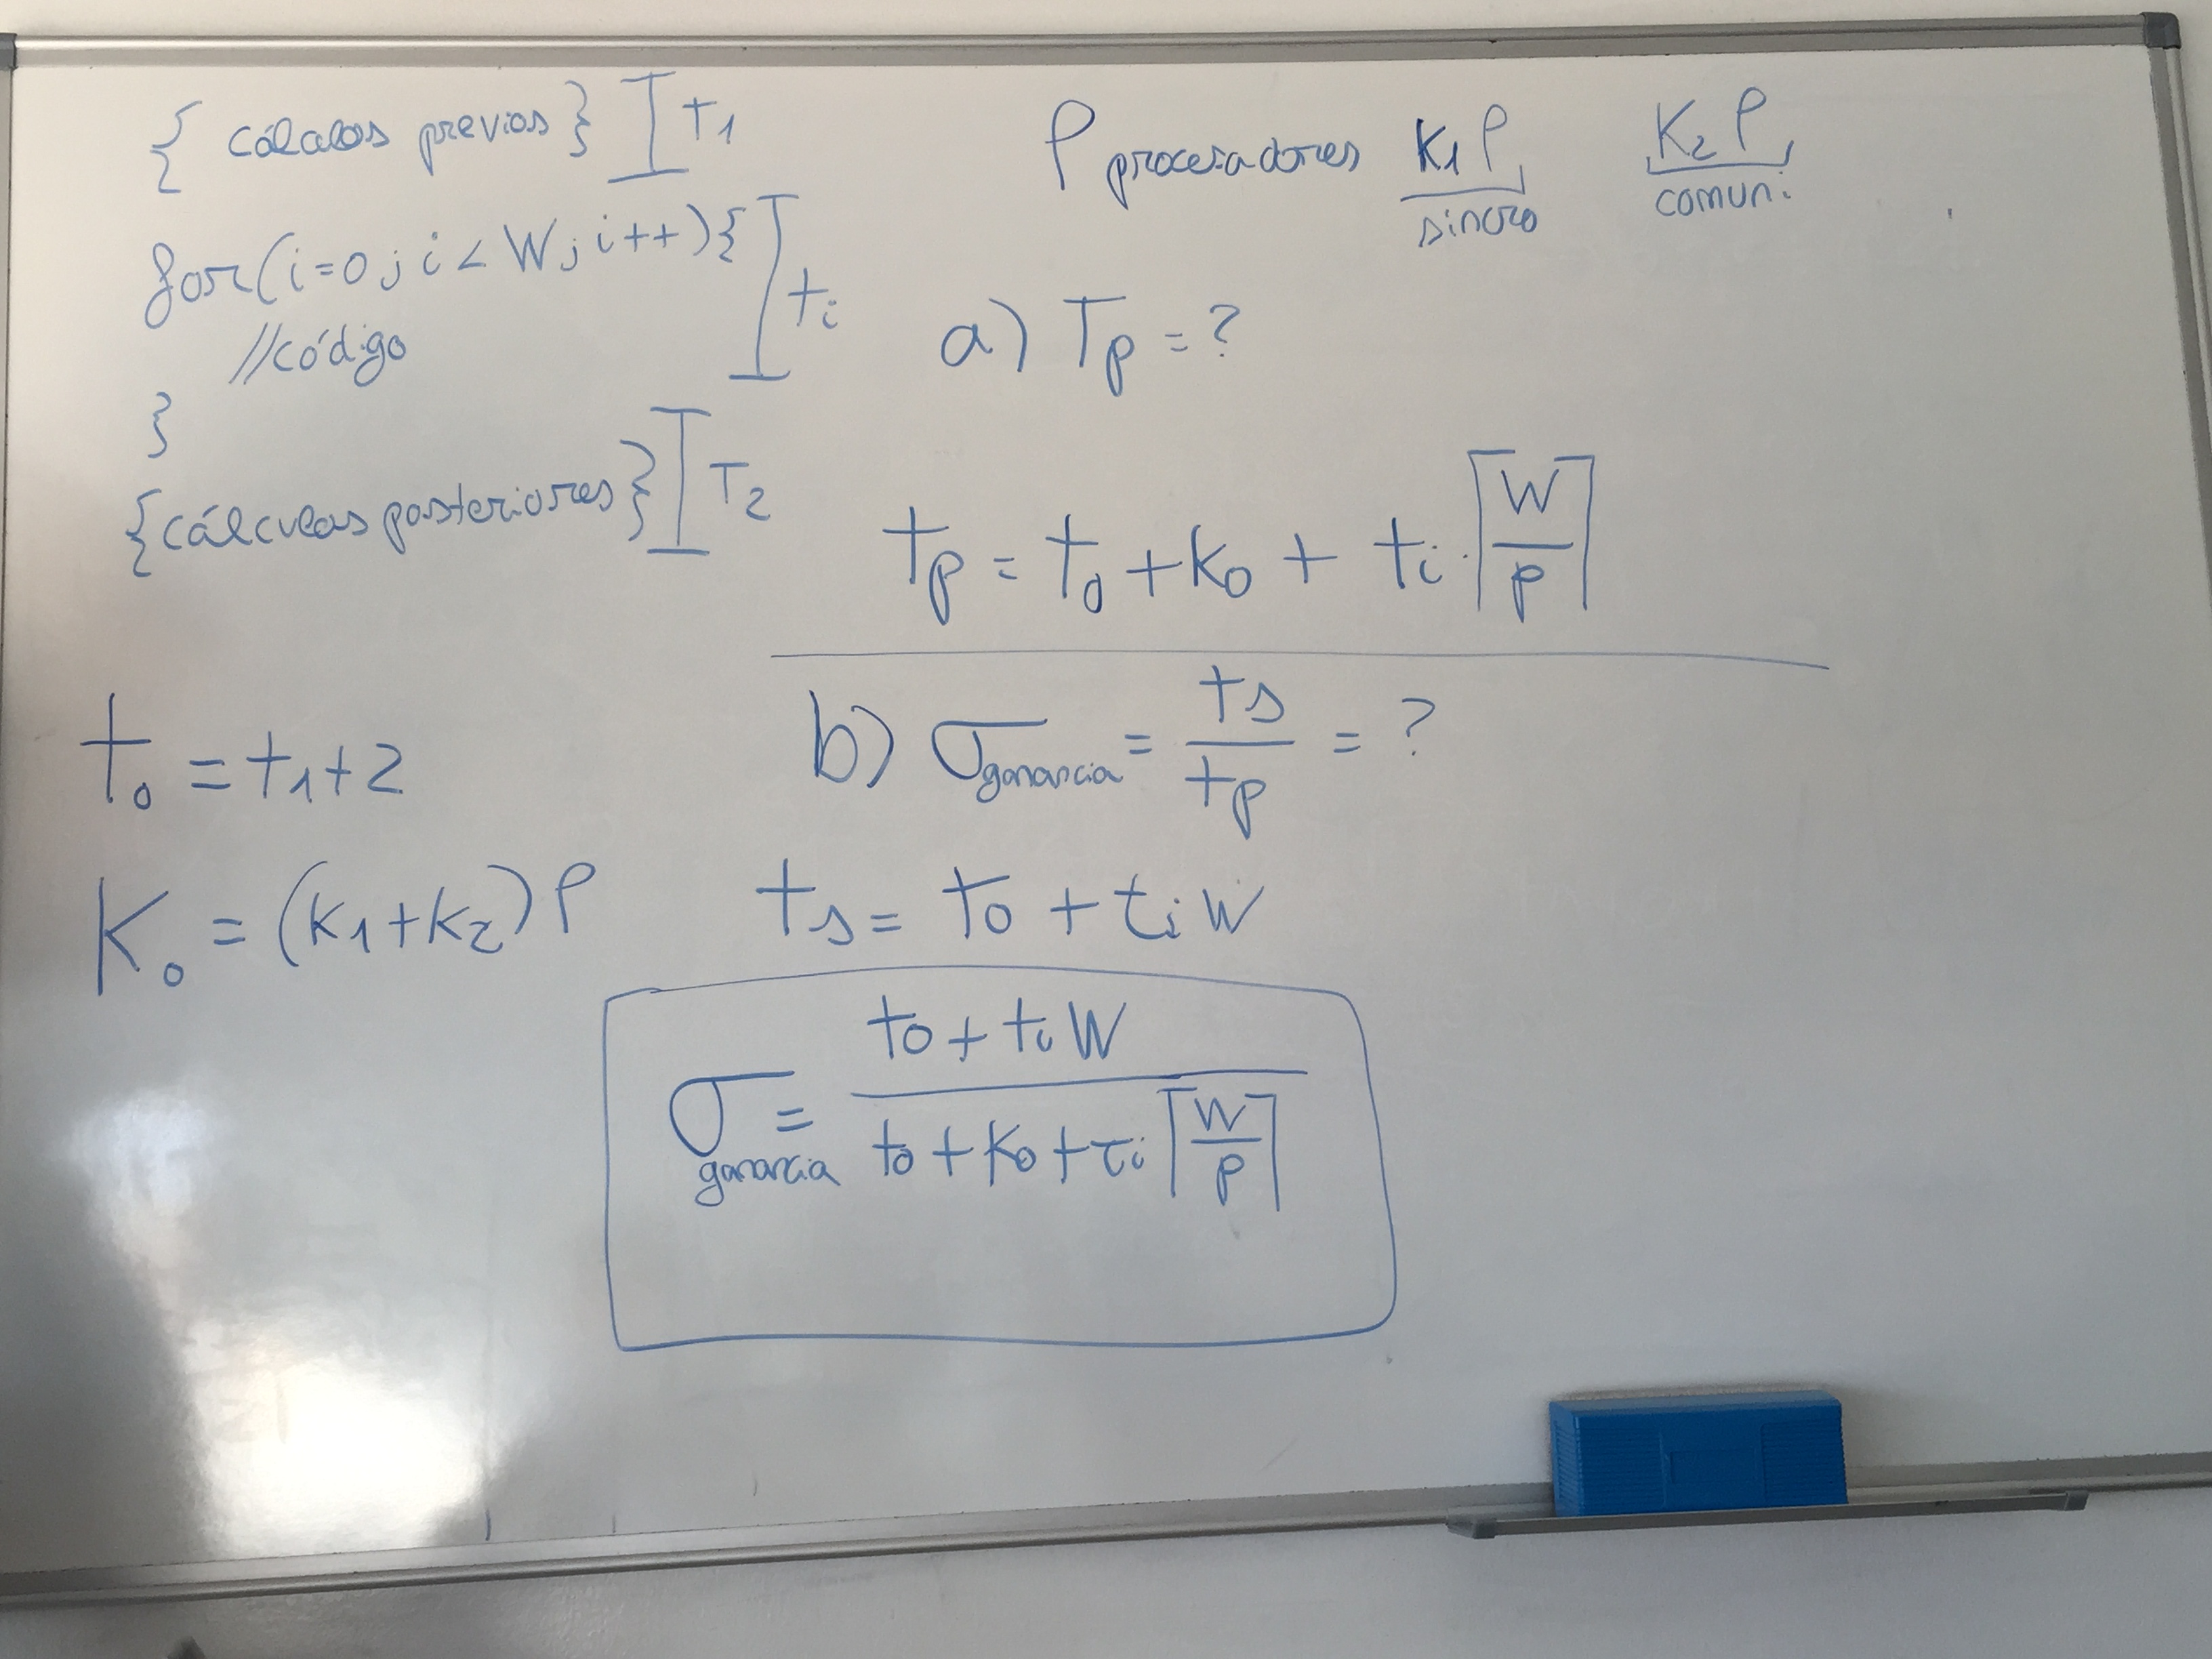 { cálculos previos } T1
for(i=0; i < W; i++){ ti
//código
}
{cálculos posteriores} T2
t0 = t1+2
K0 = (k1+k2)P
P procesadores K1P K2P
sincro comuni.
a) Tp = ?
tp = t0 + K0 + ti · ⌈W/P⌉
b) σganancia = ts/tp = ?
ts = t0 + ti W
σganancia = (t0 + ti W)/(t0 + K0 + ti ⌈W/P⌉)